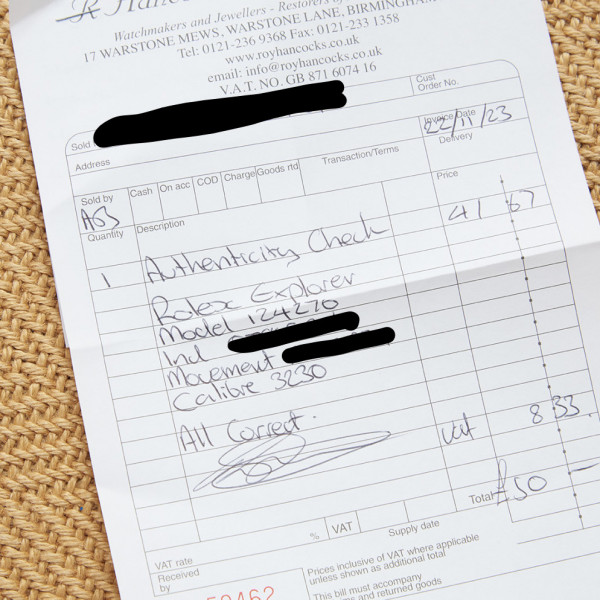 Watchmakers and Jewellers - Restorers of
17 WARSTONE MEWS, WARSTONE LANE, BIRMINGHAM
Tel: 0121-236 9368 Fax: 0121-233 1358
www.royhancocks.co.uk
email: info@royhancocks.co.uk
V.A.T. NO. GB 871 6074 16
Cust Order No.
Sold
Invoice Date 22/11/23
Address
Delivery
Sold by Cash On acc COD Charge Goods rtd Transaction/Terms
Quantity Description Price
1 Authenticity Check 41 67
Rolex Explorer
Model 124270
Ind
Movement
Calibre 3230
All Correct.
Vat 8 33.
Total £50 -
% VAT Supply date
VAT rate
Received by
Prices inclusive of VAT where applicable
unless shown as additional total
This bill must accompany
and returned goods